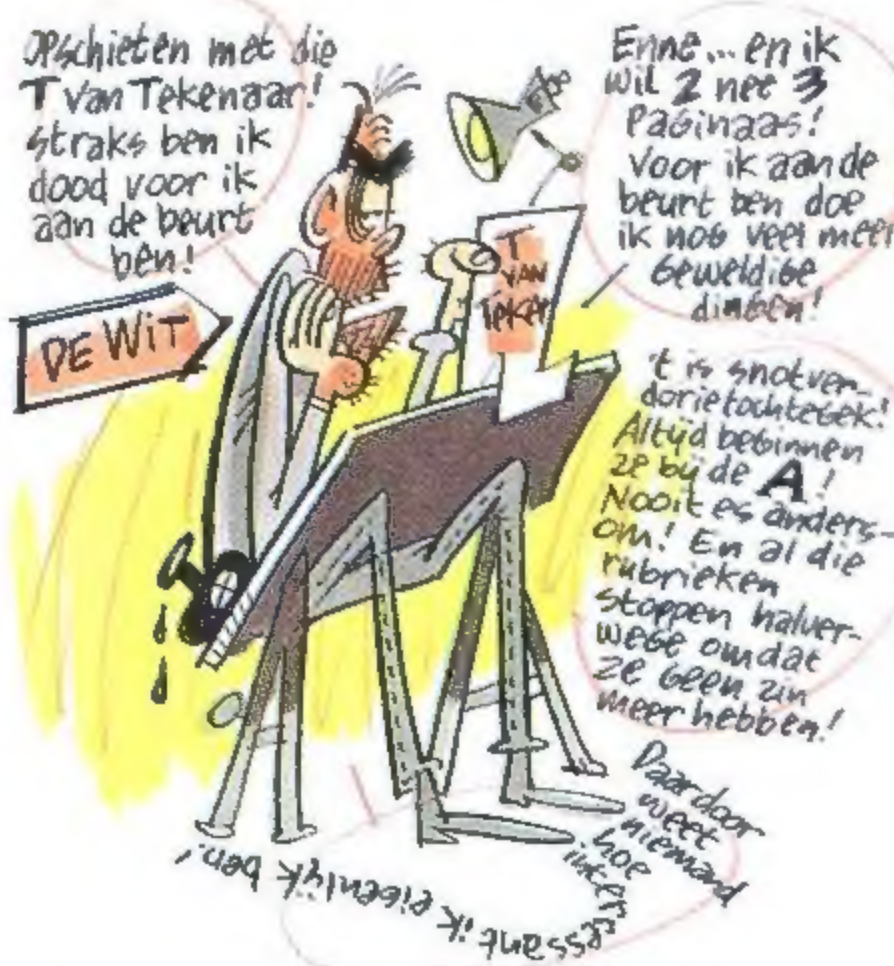 OPschieten met die
T van Tekenaar!
straks ben ik
dood voor ik
aan de beurt
ben!
Enne... en ik
wil 2 nee 3
Paginaas!
voor ik aan de
beurt ben doe
ik nog veel meer
Geweldige
dingen!
DE WIT
T
VAN
Teken
't is snotver-
dorietochtegek!
Altijd beginnen
ze bij de A!
Nooit es anders-
om! En al die
rubrieken
stoppen halver-
wege omdat
ze geen zin
meer hebben!
Daardoor
weet
niemand
hoe
interessant ik eigenlijk ben!